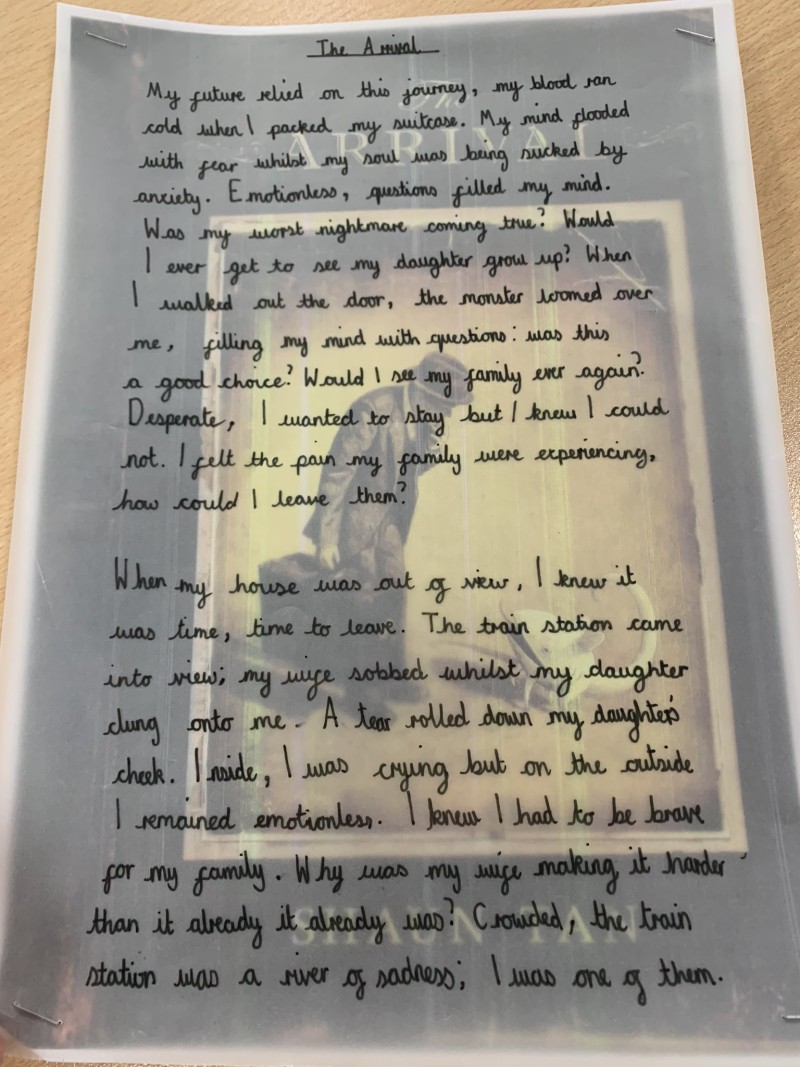 The Arrival
My future relied on this journey, my blood ran
cold when I packed my suitcase. My mind flooded
with fear whilst my soul was being sucked by
anxiety. Emotionless, questions filled my mind.
Was my worst nightmare coming true? Would
I ever get to see my daughter grow up? When
I walked out the door, the monster loomed over
me, filling my mind with questions: was this
a good choice? Would I see my family ever again?
Desperate, I wanted to stay but I knew I could
not. I felt the pain my family were experiencing,
how could I leave them?
When my house was out of view, I knew it
was time, time to leave. The train station came
into view; my wife sobbed whilst my daughter
clung onto me. A tear rolled down my daughter's
cheek. Inside, I was crying but on the outside
I remained emotionless. I knew I had to be brave
for my family. Why was my wife making it harder
than it already it already was? Crowded, the train
station was a river of sadness; I was one of them.
The
ARRIVAL
SHAUN TAN